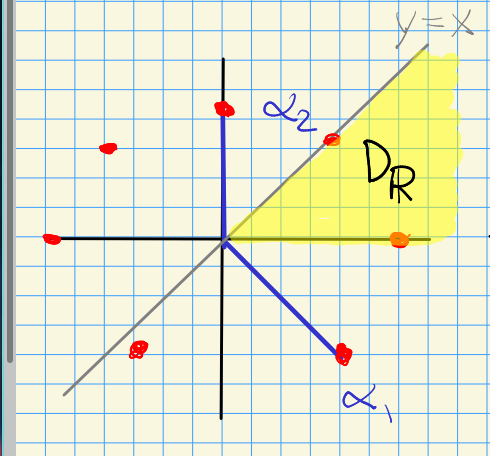 y = x
α₂
D_R
α₁